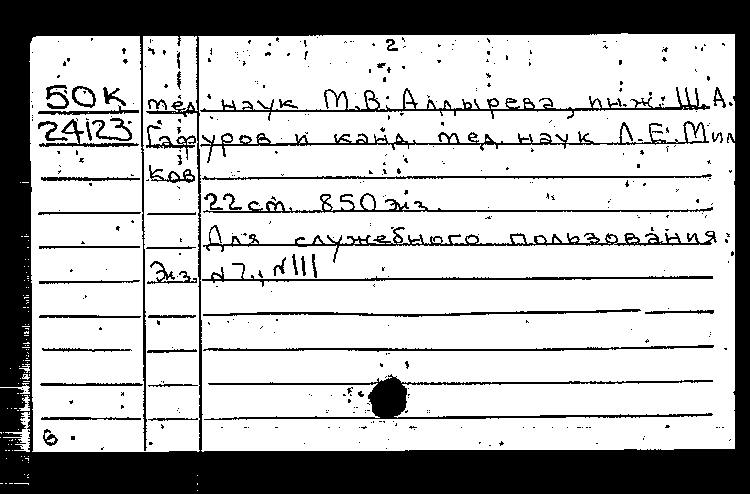 2
50К мед. наук М.В. Алдырева, инж. Ш.А.
24123 Гафуров и канд. мед. наук Л.Е. Мил
ков
22 ст. 850 экз.
Для служебного пользования.
Экз. №7., №111
6